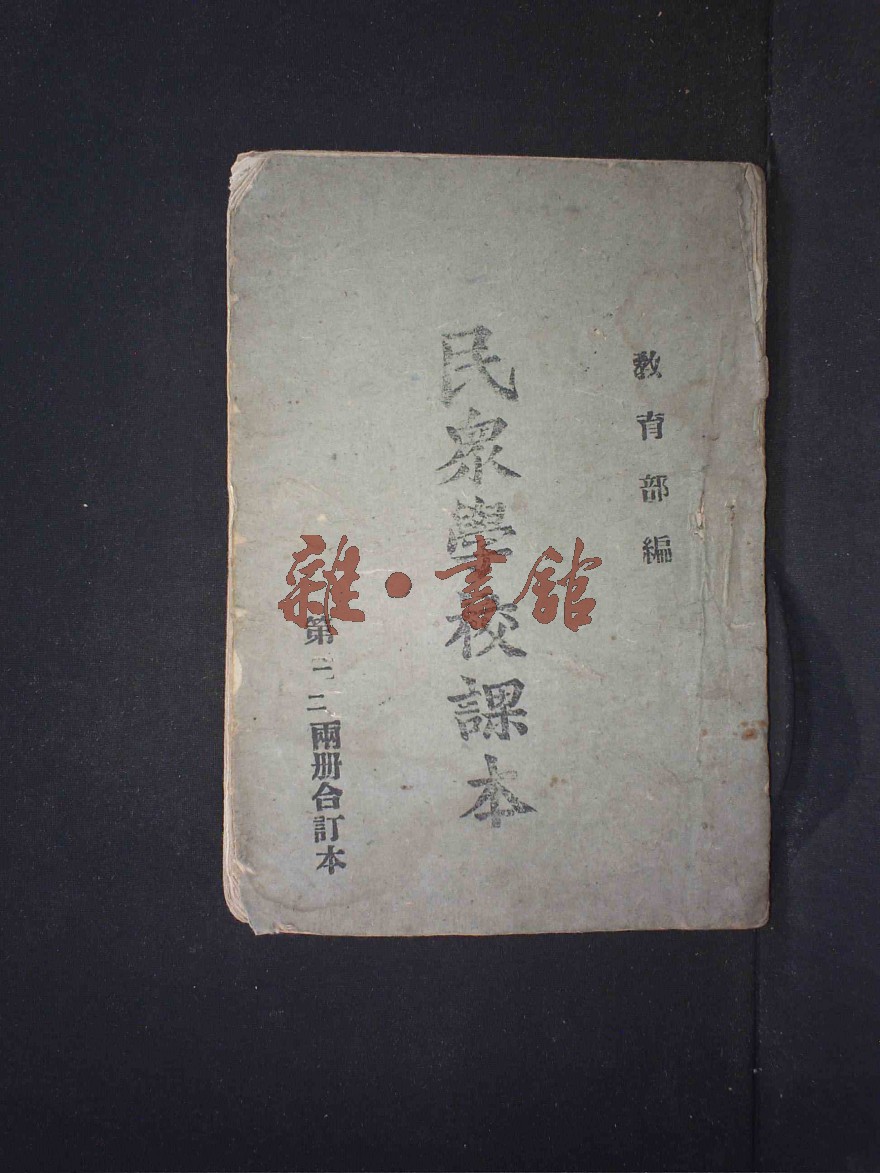 教育部編
民衆學校課本
第一、二兩册合訂本
雜·書館